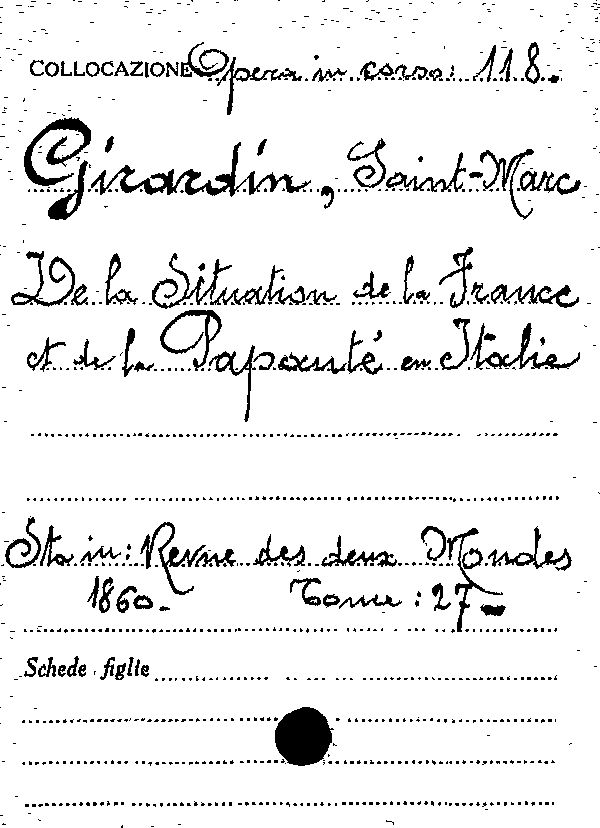 COLLOCAZIONE Opera in corso: 118.
Girardin, Saint-Marc
De la Situation de la France
et de la Papauté en Italie
Sta in: Revue des deux Mondes
1860. Tome: 27
Schede figlie